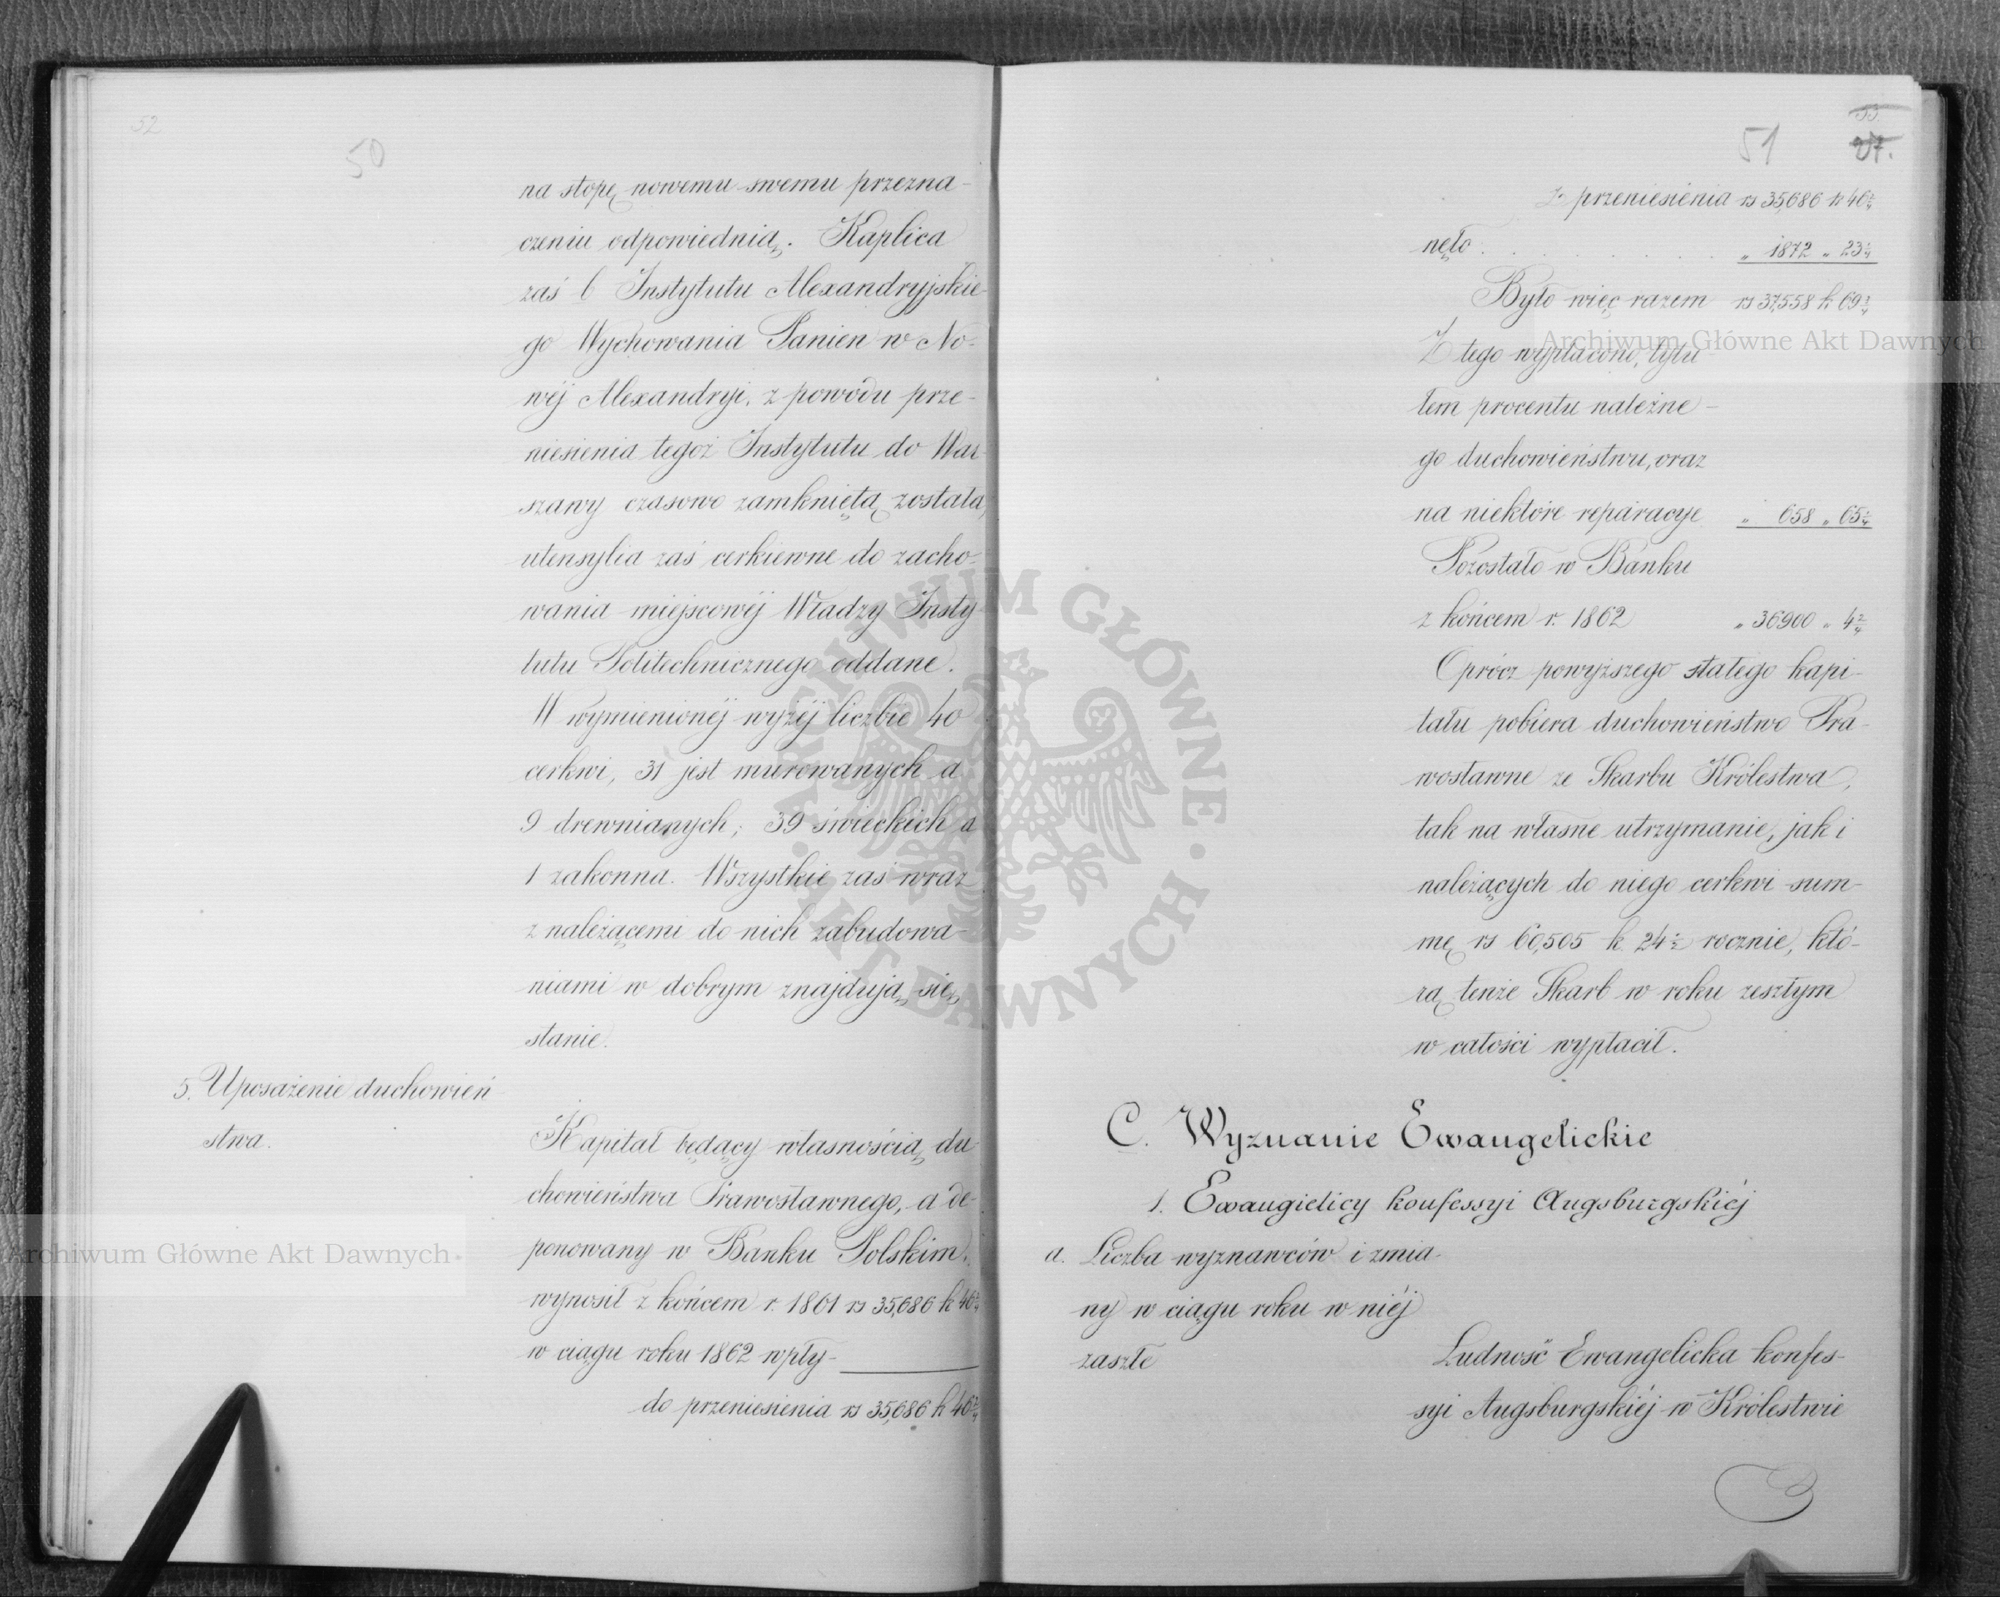 52
50
na stopę nowemu swemu przezna-
czeniu odpowiednią. Kaplica
zaś b Instytutu Alexandryjskie-
go Wychowania Panien w No-
wéj Alexandryi, z powodu prze-
niesienia tegoż Instytutu do War
szawy czasowo zamkniętą została,
utensylia zaś cerkiewne do zacho-
wania miejscowéj Władzy Insty-
tutu Politechnicznego oddane.
W wymienionéj wyżéj liczbie 40
cerkwi, 31 jest murowanych a
9 drewnianych; 39 świeckich a
1 zakonna. Wszystkie zaś wraz
z należącemi do nich zabudowa-
niami w dobrym znajdują się
stanie.
5. Uposażenie duchowień
stwa.
Kapitał będący własnością du-
chowieństwa Prawosławnego, a de-
ponowany w Banku Polskim,
wynosił z końcem r. 1861 rs 35,686 k 46 2/4
w ciągu roku 1862 wpły-
do przeniesienia rs 35,686 k 46 2/4
53.
51
27.
Z przeniesienia rs 35,686 k 46 2/4
nęło . . . . . . . . „ 1872 „ 23 1/4
Było więc razem rs 37,558 k 69 3/4
Z tego wypłacono, tytu-
łem procentu należne-
go duchowieństwu, oraz
na niektóre reparacye „ 658 „ 65 1/4
Pozostało w Banku
z końcem r. 1862 „ 36900 „ 4 2/4
Oprócz powyższego stałego kapi-
tału pobiera duchowieństwo Pra-
wosławne ze Skarbu Królestwa,
tak na własne utrzymanie, jak i
należących do niego cerkwi sum-
mę rs 60,505 k 24 1/2 rocznie, któ-
rą tenże Skarb w roku zeszłym
w całości wypłacił.
C. Wyznanie Ewangelickie
1. Ewangielicy konfessyi Augsburgskiéj
a. Liczba wyznawców i zmia-
ny w ciągu roku w niéj
zaszłe
Ludność Ewangelicka konfes-
syi Augsburgskiéj w Królestwie
Archiwum Główne Akt Dawnych
Archiwum Główne Akt Dawnych
ARCHIWUM GŁÓWNE
AKT DAWNYCH